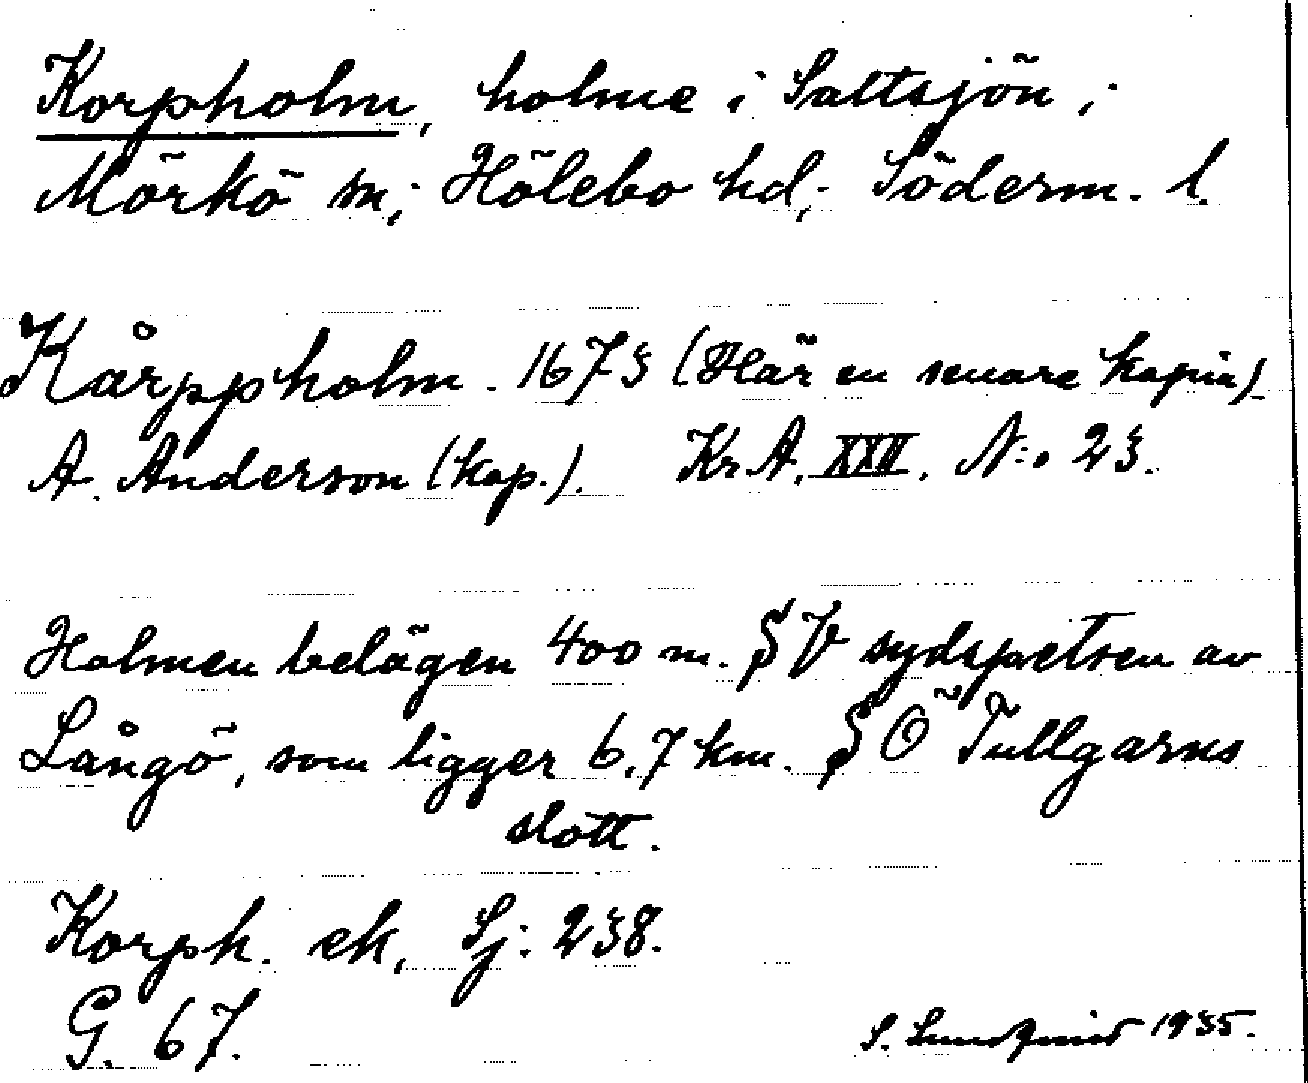 Korpholm, holme i Saltsjön,
Mörkö sn, Hölebo hd, Söderm. l.
Kårppholm. 1673 (Här en senare kopia).
A. Anderson (kop.). Kr. A. XXII. N:o 23.
Holmen belägen 400 m. S V sydspetsen av
Långö, som ligger 6,7 km. S Ö Tullgarns
slott.
Korph. ek, Sj: 238.
G. 67.
S. Lundqvist 1935.